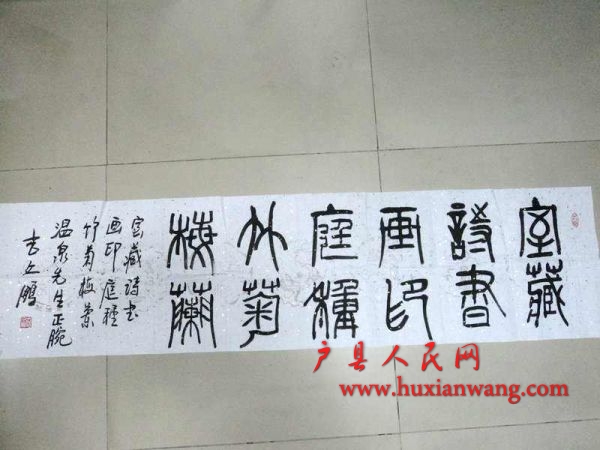 室藏
詩書
画印
庭種
竹菊
梅蘭
室藏詩书
画印庭種
竹菊梅兰
温泉先生正腕
鹏
户县人民网
www.huxianwang.com